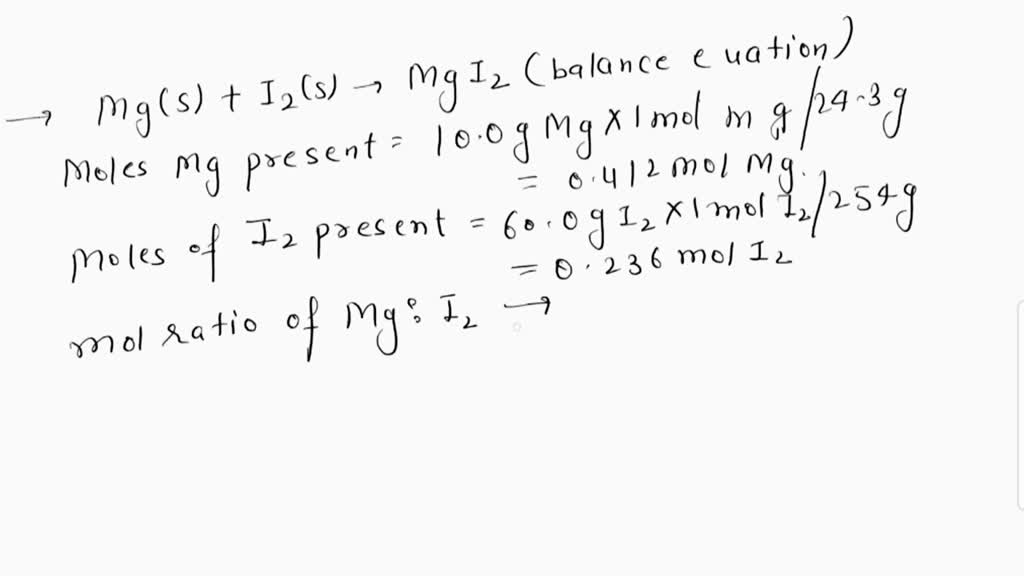 → Mg(s) + I₂(s) → MgI₂ (balance e uation)
Moles Mg present = 10.0g Mg × 1 mol m g/24.3g
= 0.412 mol Mg.
Moles of I₂ present = 60.0g I₂ × 1 mol I₂/254g
= 0.236 mol I₂
mol ratio of Mg : I₂ →